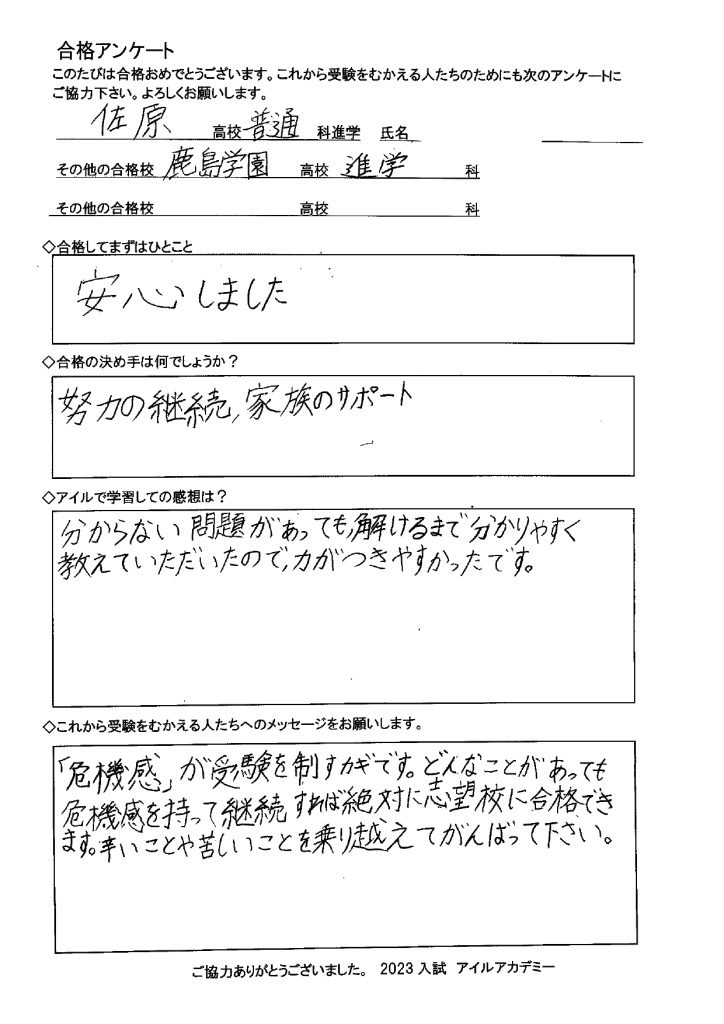 合格アンケート
このたびは合格おめでとうございます。これから受験をむかえる人たちのためにも次のアンケートに
ご協力下さい。よろしくお願いします。
佐原 高校 普通 科進学 氏名
その他の合格校 鹿島学園 高校 進学 科
その他の合格校 高校 科
◇合格してまずはひとこと
安心しました
◇合格の決め手は何でしょうか？
努力の継続,家族のサポート
◇アイルで学習しての感想は？
分からない問題があっても,解けるまで分かりやすく
教えていただいたので,力がつきやすかったです。
◇これから受験をむかえる人たちへのメッセージをお願いします。
「危機感」が受験を制すカギです。どんなことがあっても
危機感を持って継続すれば絶対に志望校に合格でき
ます。辛いことや苦しいことを乗り越えてがんばって下さい。
ご協力ありがとうございました。 2023入試 アイルアカデミー